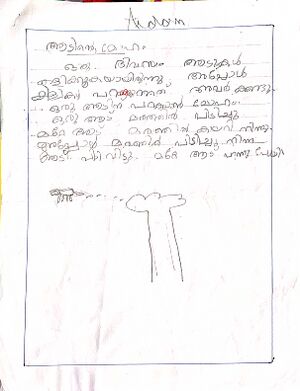 Aidom
ആടിന്റെ മോഹം
ഒരു ദിവസം ആടുകൾ
കളിക്കുകയായിരുന്നു അപ്പോൾ
കിളികൾ പറക്കുന്നത് അവർ കണ്ടു
ഒരു ആടിന് പറക്കാൻ മോഹം
ഒരു ആട് മരത്തിൽ പിടിച്ചു
മറ്റേ ആട് മരത്തിൽ കയറി നിന്നു
അപ്പോൾ മരത്തിൽ പിടിച്ചു നിന്ന
ആട് പിടി വിട്ടു മറ്റേ ആട് പറന്നു പോയി